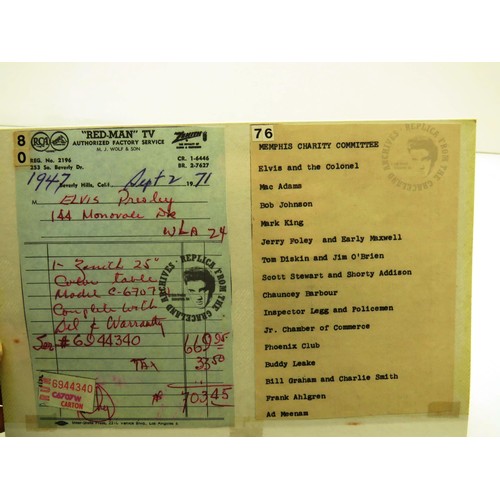 80
RCA
"RED-MAN" TV
ZENITH
AUTHORIZED FACTORY SERVICE
M. J. WOLF & SON
REG. No. 2196
CR. 1-6446
233 So. Beverly Dr.
BR. 2-7627
1947 Beverly Hills, Calif., Sept 2 1971
M ELVIS Presley
144 Monovale Dr
WLA 24
1- Zenith 25"
Color table
Model C-6707
Complete with
Del & Warranty
Ser #6944340 669 95
TAX 33 50
703 45
6944340
C6707W
CARTON
REPLICA FROM THE GRACELAND ARCHIVES
76
MEMPHIS CHARITY COMMITTEE
Elvis and the Colonel
Mac Adams
Bob Johnson
Mark King
Jerry Foley and Early Maxwell
Tom Diskin and Jim O'Brien
Scott Stewart and Shorty Addison
Chauncey Barbour
Inspector Legg and Policemen
Jr. Chamber of Commerce
Phoenix Club
Buddy Leake
Bill Graham and Charlie Smith
Frank Ahlgren
Ad Meenam
REPLICA FROM THE GRACELAND ARCHIVES